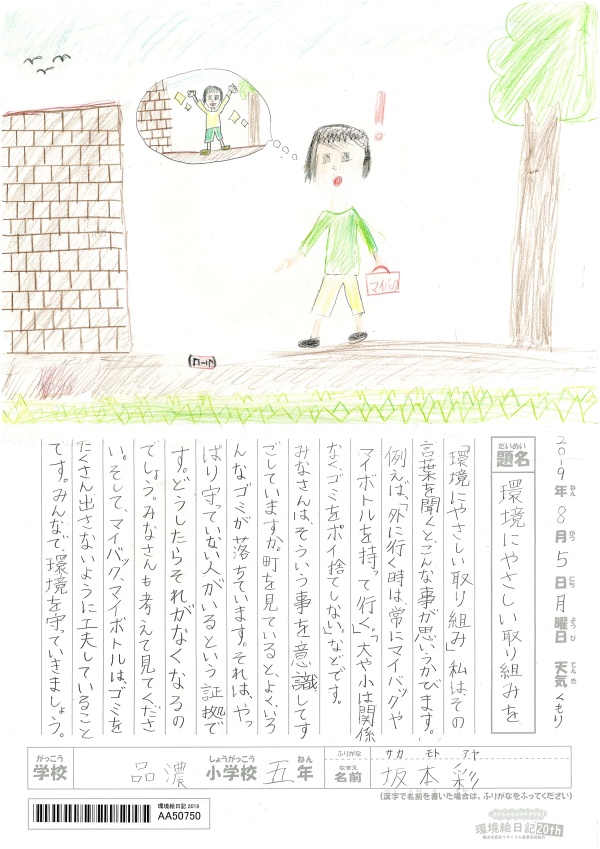 マイバッグ
コーヒー
2019年8月5日月曜日 天気くもり
ねん がつ にち ようび てんき
だいめい
題名
環境にやさしい取り組みを
「環境にやさしい取り組み」私は、その
言葉を聞くと、こんな事が思いうかびます。
例えば、「外に行く時は常にマイバッグや
マイボトルを持って行く。」「大や小は関係
なく、ゴミをポイ捨てしない。」などです。
みなさんは、そういう事を意識してす
ごしていますか。町を見ていると、よく、いろ
んなゴミが落ちています。それは、やっ
ぱり守っていない人がいるという証拠で
す。どうしたらそれがなくなるの
でしょう。みなさんも考えて見てくださ
い。そして、マイバッグ、マイボトルは、ゴミを
たくさん出さないように工夫していること
です。みんなで、環境を守っていきましょう。
がっこう しょうがっこう ねん ふりがな サカ モト アヤ
学校 品濃 小学校 五年 なまえ 名前 坂本彩
(漢字で名前を書いた場合は、ふりがなをふってください)
環境絵日記2019
AA50750
環境絵日記20th